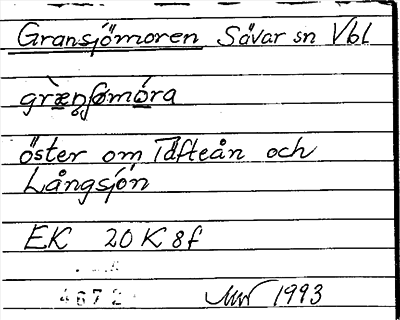 Gransjömoren Sävar sn Vbl
öster om Täfteån och
Långsjön
EK 20K8f
4672
1993